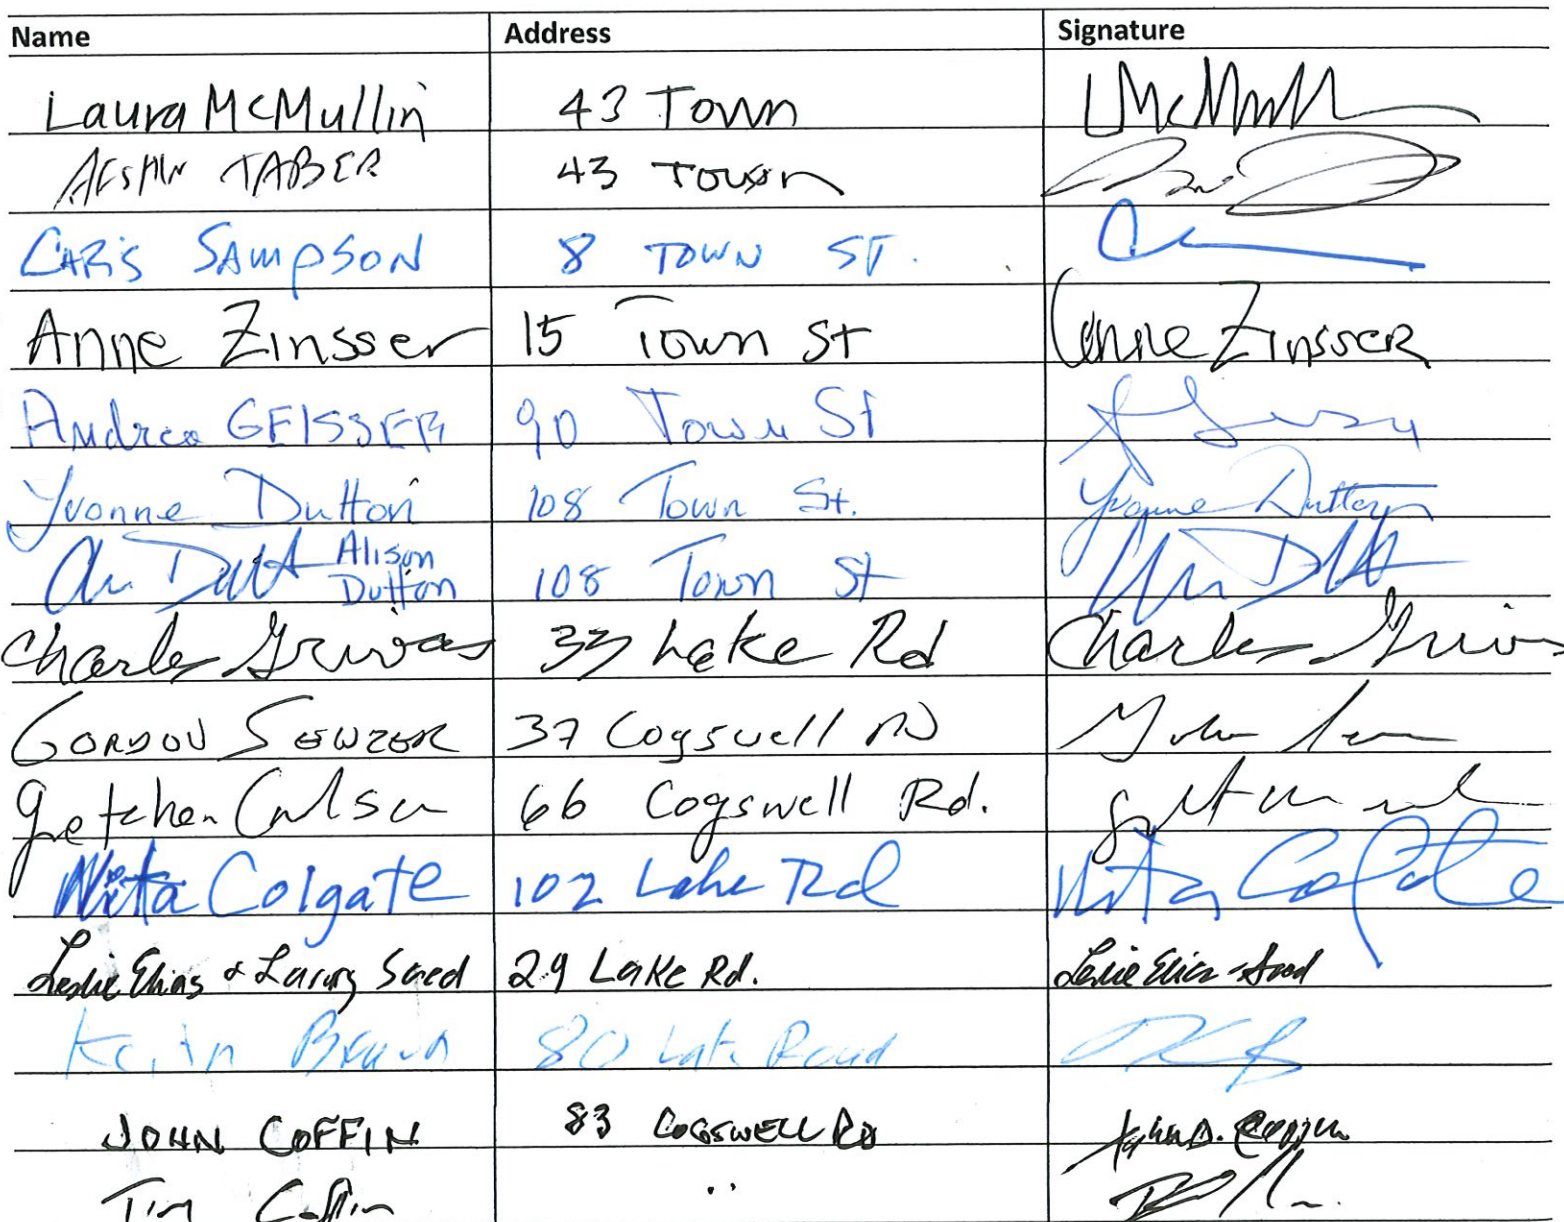 Name Address Signature
Laura McMullin 43 Town LMcMull
TABER 43 Town
CHRIS SAMPSON 8 TOWN ST.
Anne Zinsser 15 Town St Anne Zinsser
Andrea GEISSER 90 Town St
Yvonne Dutton 108 Town St. Yvonne Dutton
Alison Dutton 108 Town St
Charles Grivas 33 Lake Rd Charles Grivas
GORDON 37 Cogswell RD
Gretchen Carlson 66 Cogswell Rd.
Nita Colgate 102 Lake Rd Nita Colgate
Leslie Elias & Saed 29 Lake Rd. Leslie Elias-Saed
Kevin Brown 80 Lake Road
JOHN COFFIN 83 COGSWELL RD John D. Coffin
Tim Coffin ..